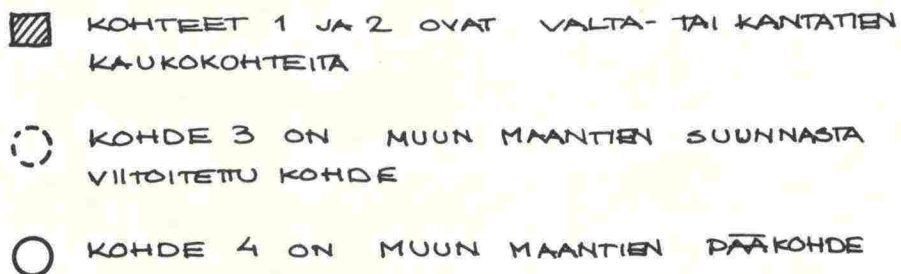 KOHTEET 1 JA 2 OVAT VALTA- TAI KANTATIEN
KAUKOKOHTEITA
KOHDE 3 ON MUUN MAANTIEN SUUNNASTA
VIITOITETTU KOHDE
KOHDE 4 ON MUUN MAANTIEN PÄÄKOHDE